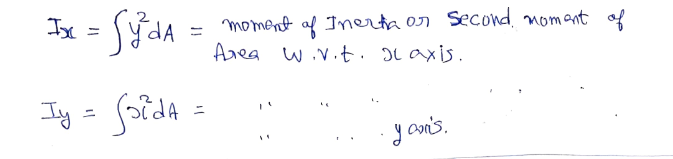 Ix = ∫y²dA = moment of Inertia or Second moment of
Area w.r.t. x axis.
Iy = ∫x²dA = " " "
" " " y axis.